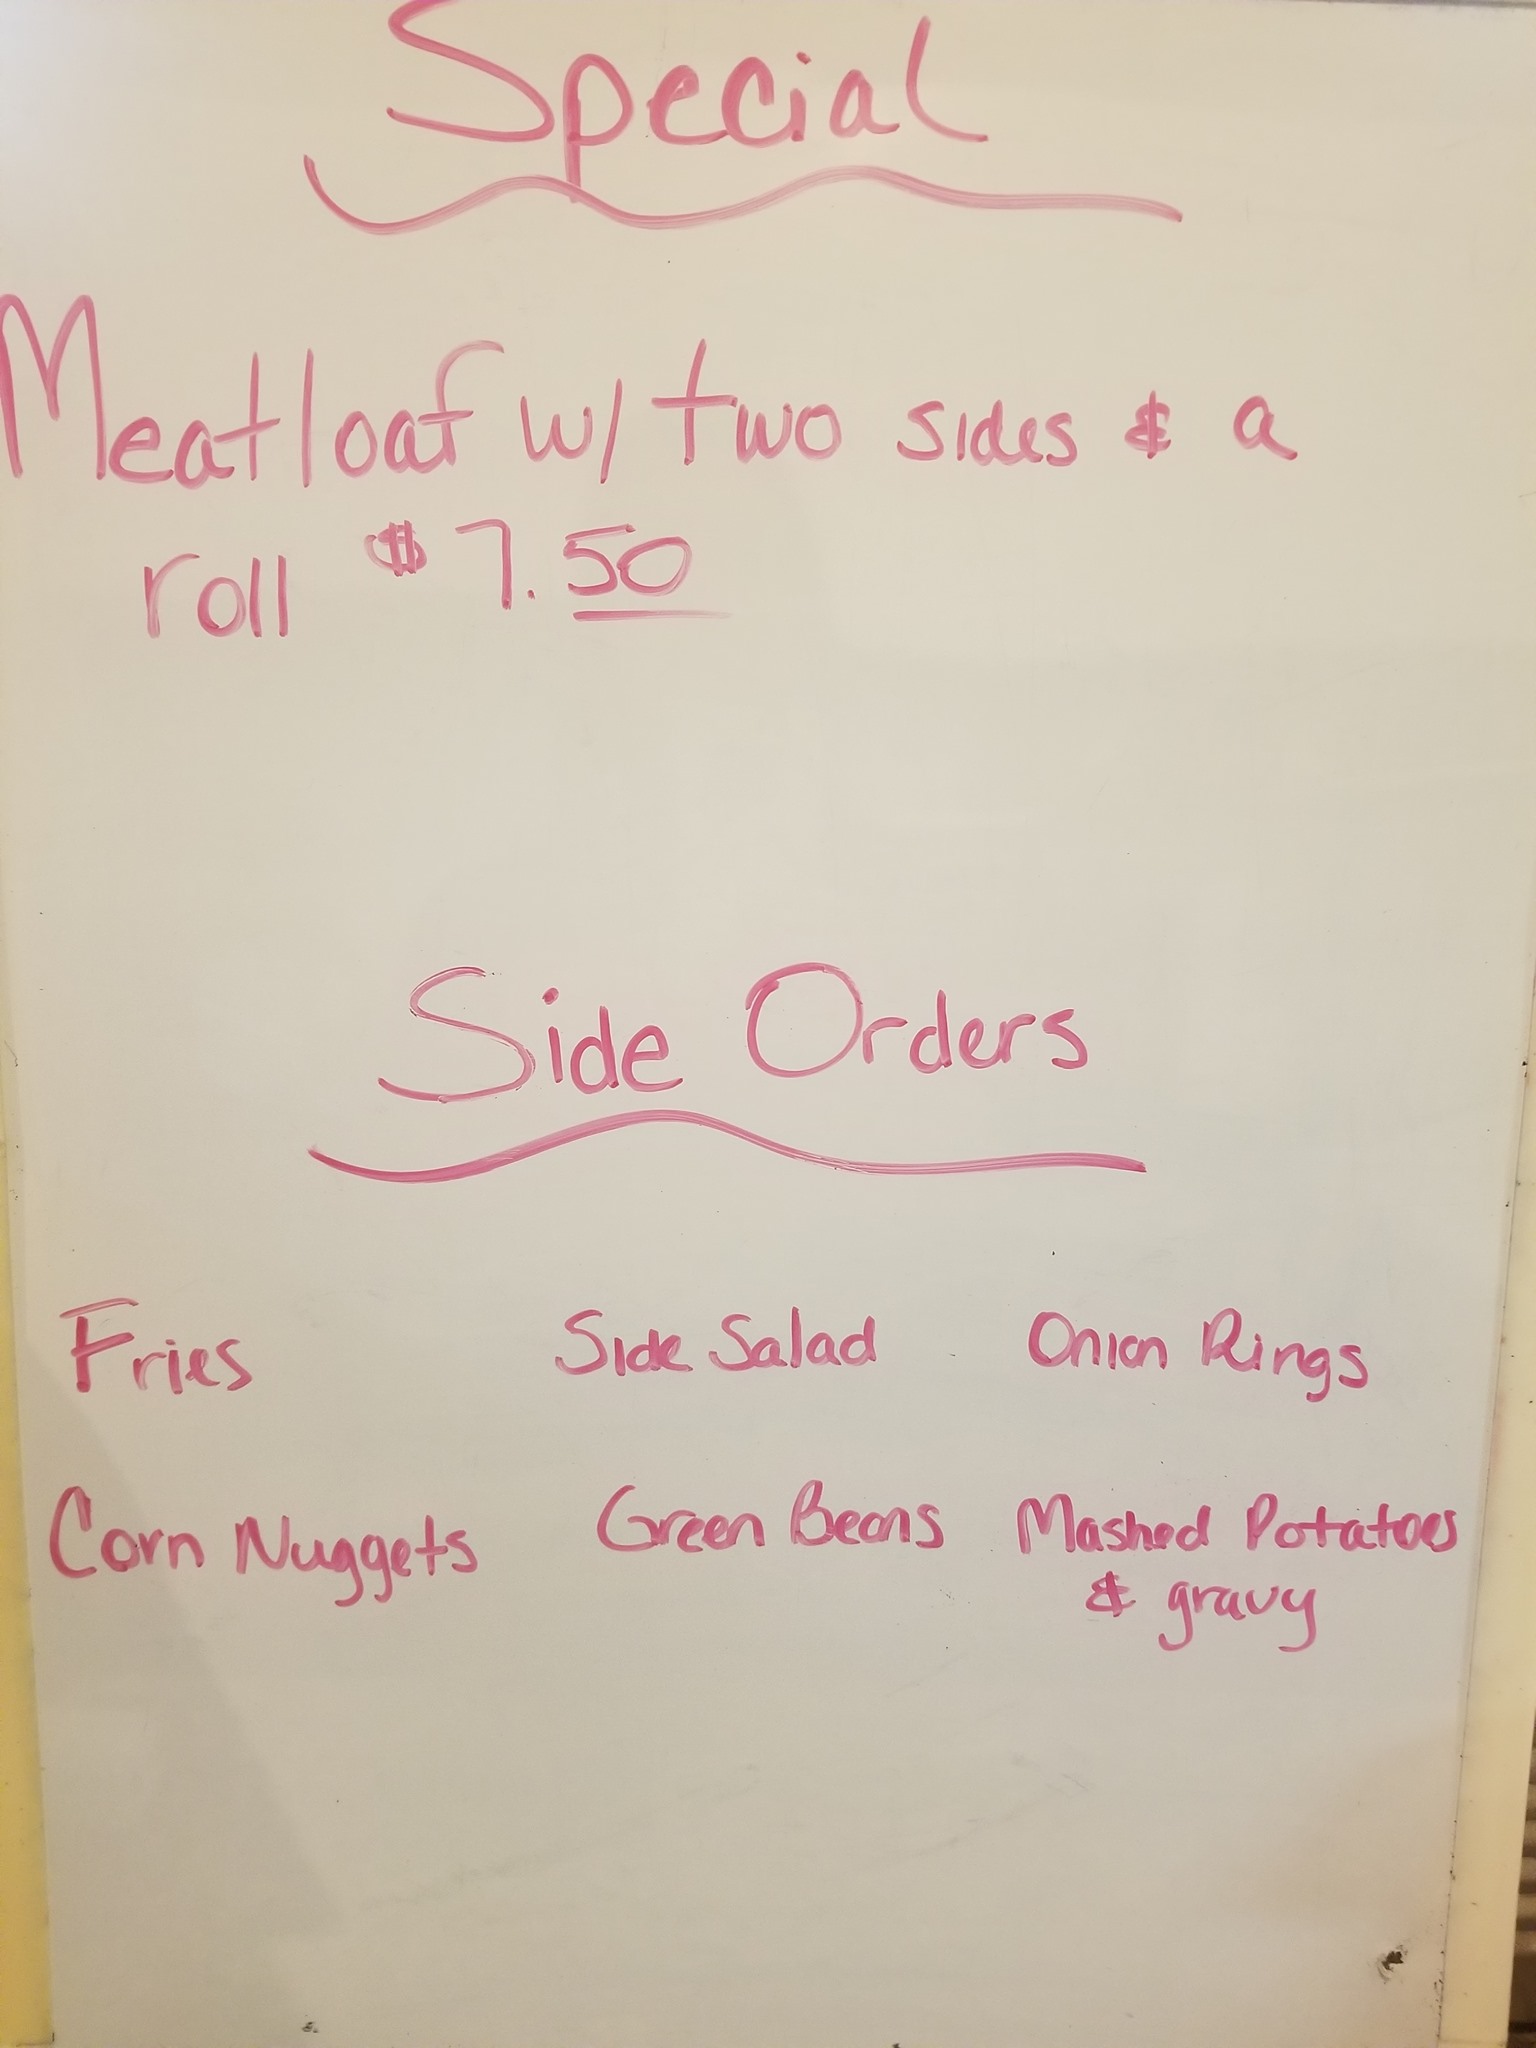 Special
Meatloaf w/ two sides & a
roll $7.50
Side Orders
Fries Side Salad Onion Rings
Corn Nuggets Green Beans Mashed Potatoes
& gravy